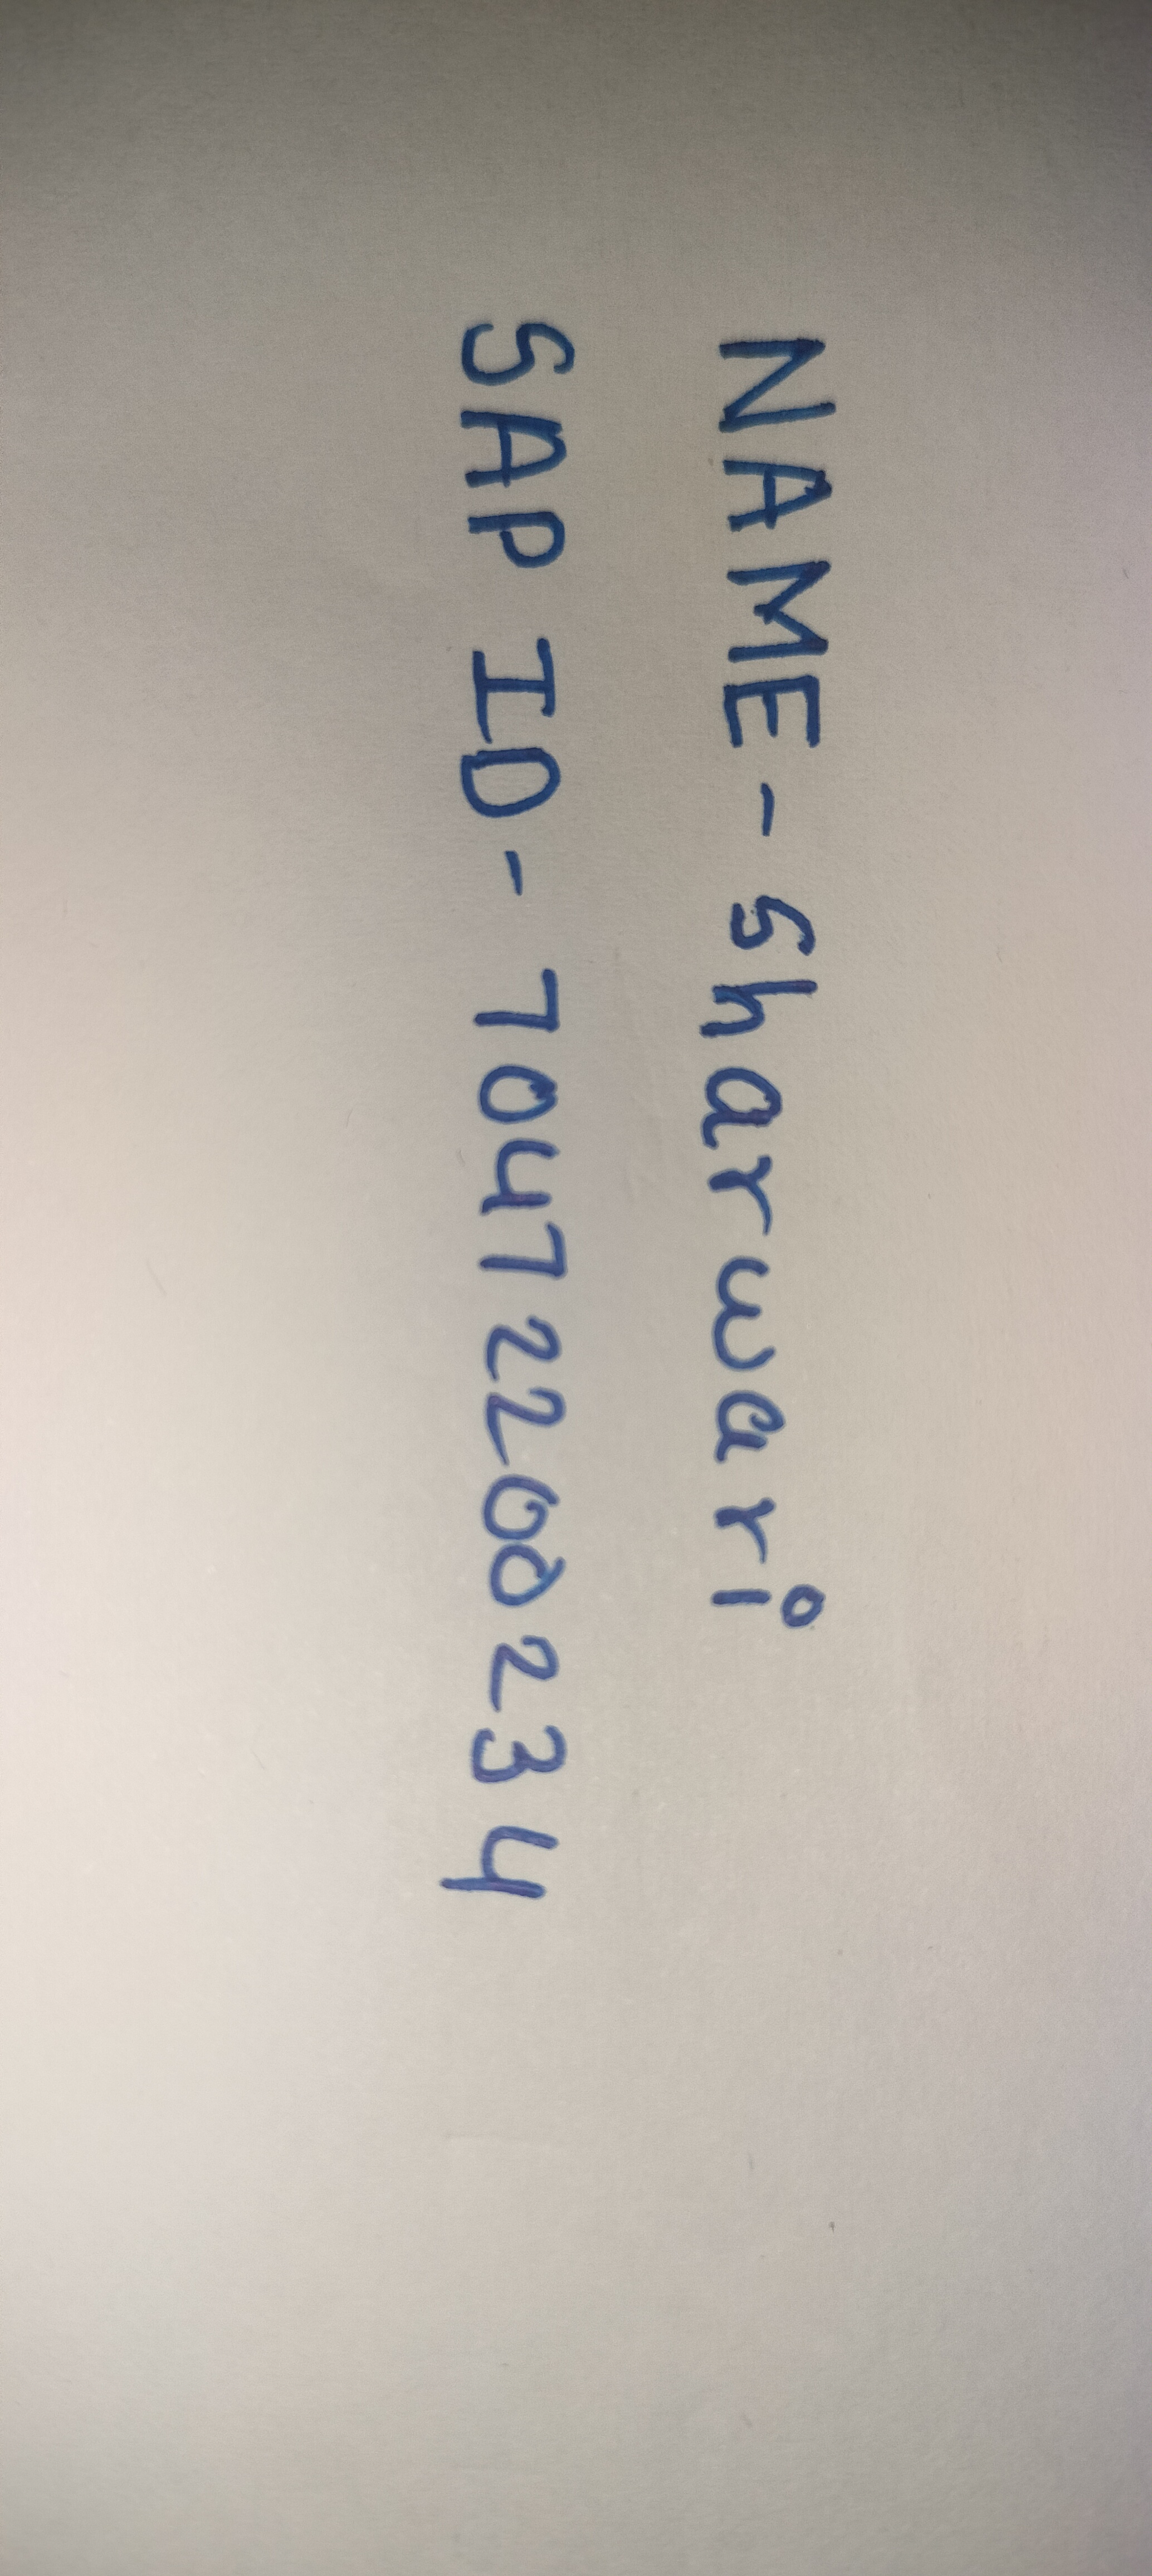 NAME - Sharwari
SAP ID - 70472200234